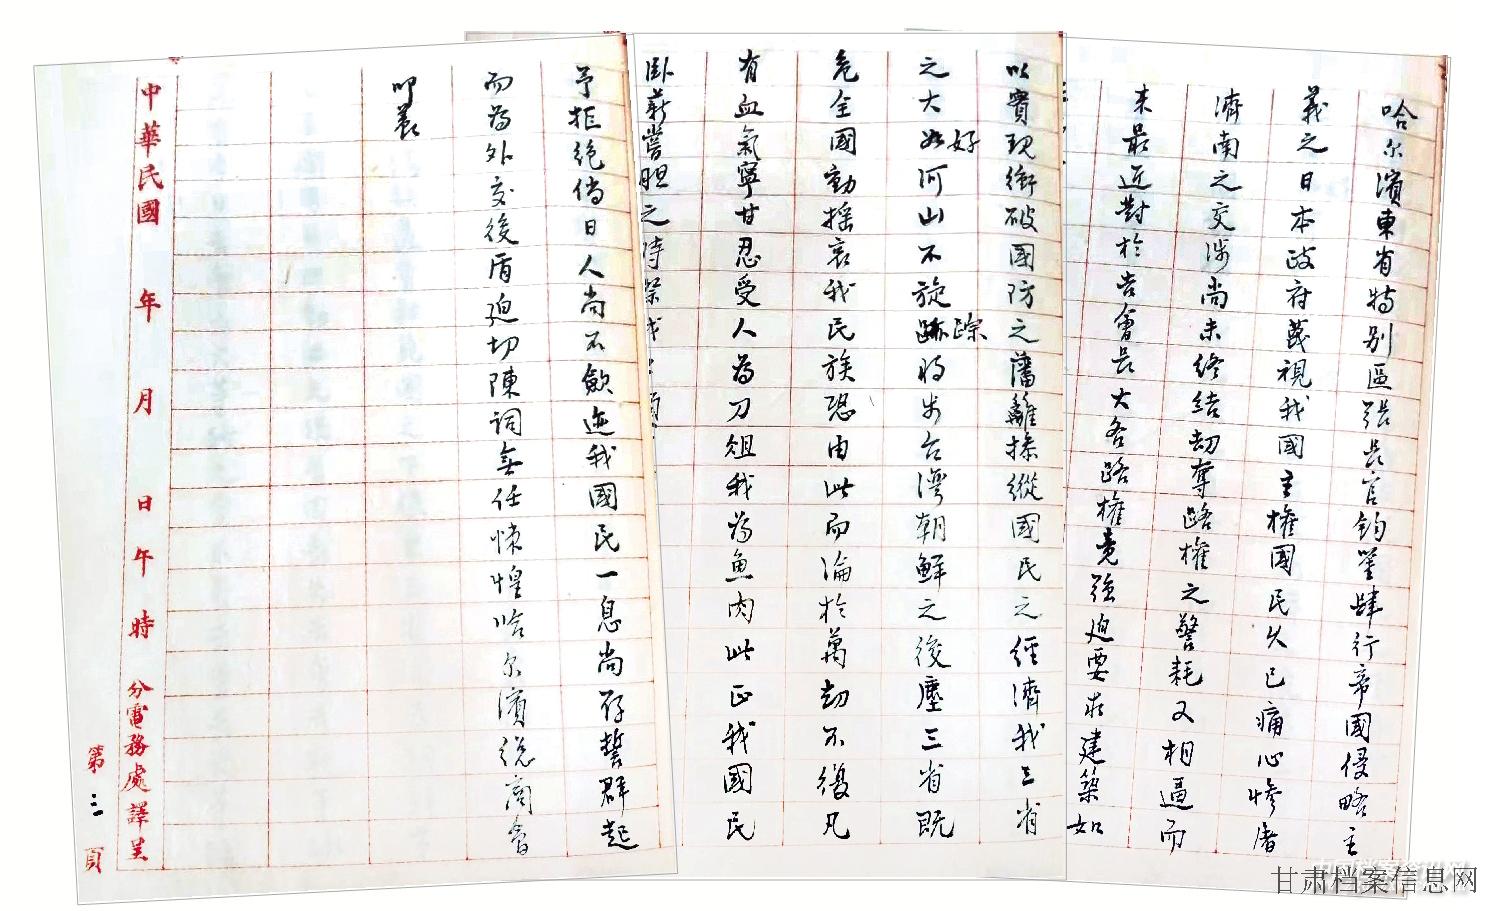 哈尔濱東省特别區張長官鈞鑒肆行帝國侵略主
義之日本政府蔑視我國主權國民久已痛心慘屠
濟南之交涉尚未终结劫奪路權之警耗又相逼而
来最近對於吉會長大各路權竟強迫要求建築如
以實現衝破國防之藩籬操縱國民之經濟我三省
之大好河山不旋踪将步台灣朝鮮之後塵三省既
危全國動摇哀我民族恐由此而淪於萬劫不復凡
有血氣寧甘忍受人為刀俎我為魚肉此正我國民
卧薪嘗胆之時
予拒绝倘日人尚不斂迹我國民一息尚存誓群起
而為外交後盾迫切陳詞無任悚惶哈尔濱總商會
叩養
中華民國 年 月 日午時 分電務處譯呈
第三頁
甘肃档案信息网